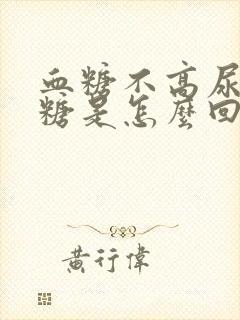 血糖不高尿
糖是怎麼回
黃行偉